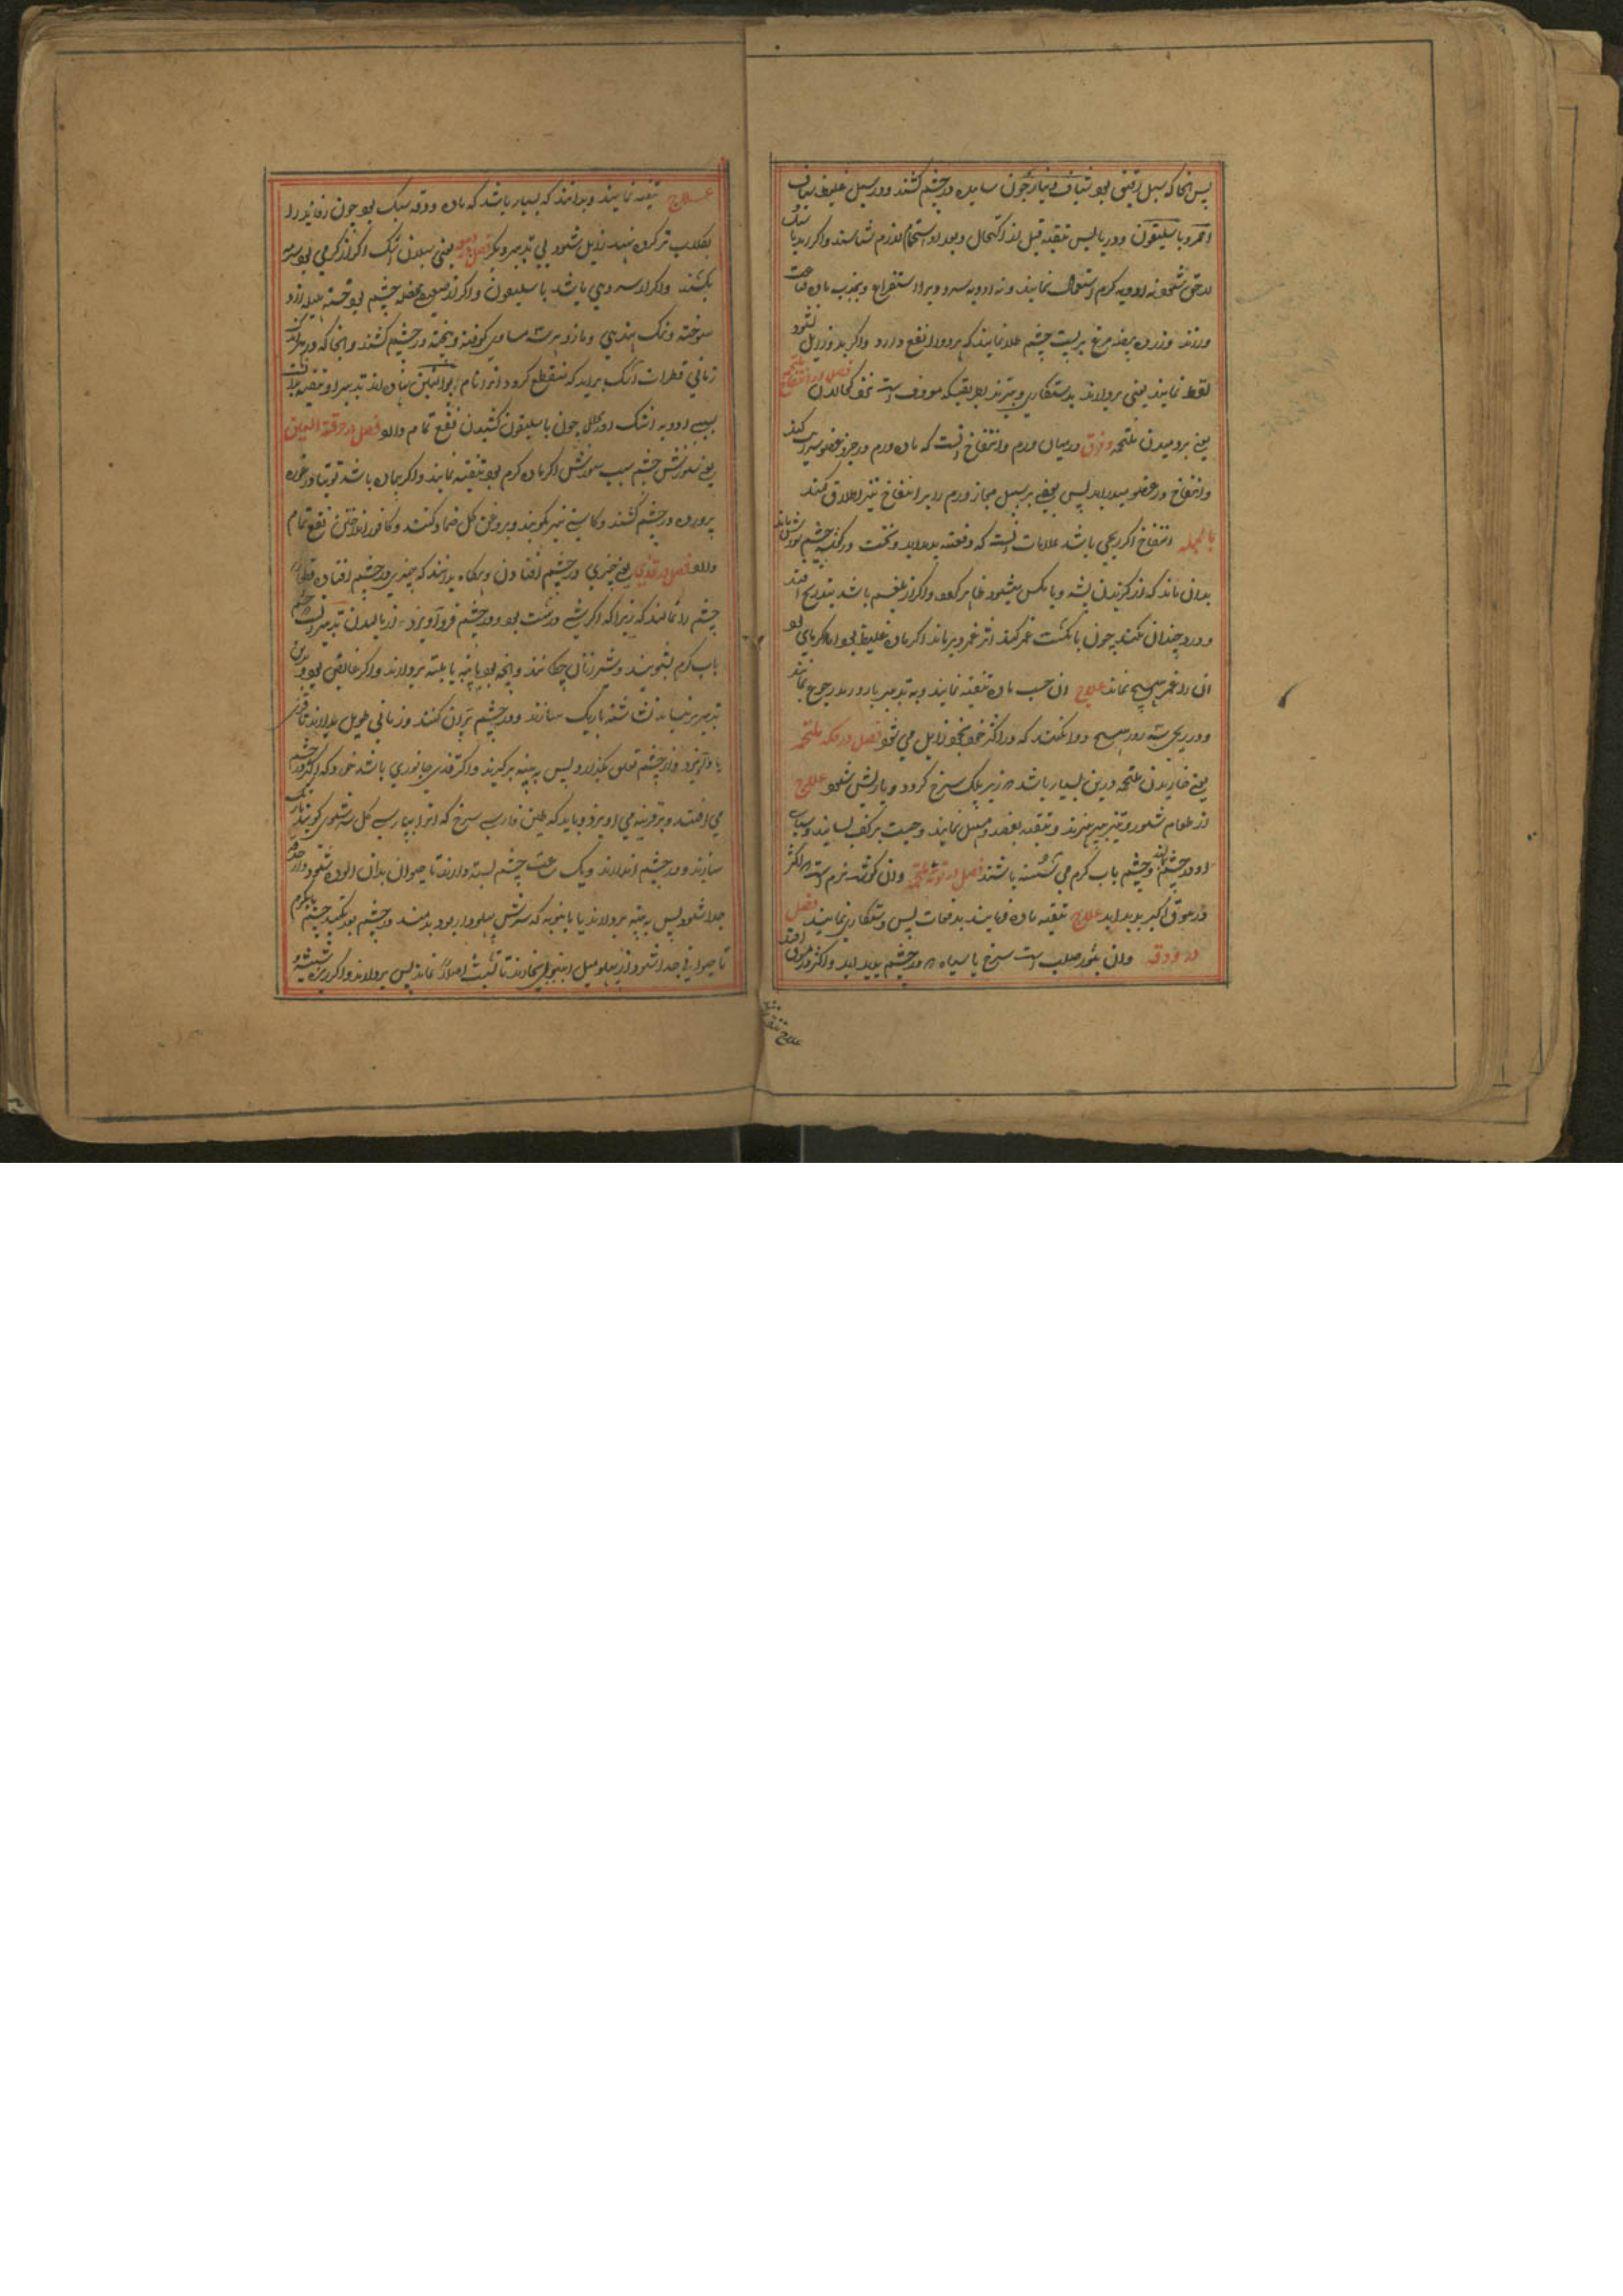 پس انجا که سبل رقیق بود شیاف دینارجون سایده در چشم کشند و در سبل غلیظ شیاف
احمر و باسلیقون و در یابس تنقیه قبل از اکتحال و بعد او استحمام لازم شناسند و اگر رمد با سبل
لاحق شود نه ادویه گرم استعمال نمایند و نه ادویه سرد و برادر استفراغ و بجذب ماده قناعت
ورزند و زرده بیضه مرغ بر پشت چشم طلا نمایند که هر دو را نفع دارد و اگر بدوا زایل نشود
لقط نمایند یعنی بردارند بدستکاری و ببرند بطریقیکه معروفست نزد کحالان فصل در انتفاخ ملتحمه
یعنی بردمیدن ملتحمه و فرق در میان ورم و انتفاخ انست که ماده ورم در جرم عضو سرایت کند
و انتفاخ در عضو میدراید پس بعضی بر سبیل مجاز ورم را بر انتفاخ نیز اطلاق کنند
بالجمله انتفاخ اگر ریحی باشد علامات انست که دفعته پدید اید و نخست در گوشه چشم سوزش باشد
بدان ماند که از گزیدن پشه و یا مگس میشود ظاهر گردد و اگر از بلغم باشد بتدریج افتد
و درد چندان نکند چون بانگشت غمز کنند اثر غمز دیر ماند اگر ماده غلیظ بود و اگر مای بود
ان را غمز هیچ نماند علاج ان حسب ماده تنقیه نمایند و به تدبیر بارد رمد رجوع نمایند
و در ریحی سه روز هیچ دوا نکنند که در اکثر خود بخود زایل می شود فصل در حکه ملتحمه
یعنی خاریدن ملتحمه درین بسیار باشد که زیر پلک سرخ گردد و یا ریش شود علاج
از طعام شور و تیز بپرهیزند و تنقیه بفصد و مسهل نمایند
او در چشم کشند و چشم باب گرم می شسته باشند فصل در توته ملتحمه و ان گوشتیه نرم است که اکثر
در موق اکبر پدید اید علاج تنقیه ماده نمایند بدفعات پس دستکاری نمایند فصل
در ودقه وان بثور صلب است سرخ یا سیاه که در چشم پدید اید و اکثر در موق افتد
علاج تنقیه
علاج تنقیه نمایند و بدانند که بسیار باشد که ماده ودقه سبک بود چون رفاده را
بگلاب تر کرده نهند زایل شود بی تدبیر دیگر فصل در دمعه یعنی سیلان اشک اگر از گرمی بود سرمه
بکشند و اگر از سردی باشد باسلیقون و اگر از ضعف عضله چشم بود خسته هلیله زرد
سوخته و نمک هندی و مازو هر سه مساوی کوفته و بیخته در چشم کشند و انجا که در هر
زمانی قطرات اشک براید که منقطع گردد انرا نام ابوالبلتین نهاده اند تدبیر او تنقیه
بسی ادویه اشک اور کحل چون باسلیقون کشیدن نفع تمام دارد فصل در حرقة العین
یعنی سوزش چشم سبب سوزش اگر ماده گرم بود تنقیه نمایند و اگر بی ماده باشد توتیا در غوره
پرورده در چشم کشند و کاسنی نیز بکوبند و بروغن گل ضماد کنند و کافور انداختن نفع تمام
دارد فصل در قذی یعنی چیزی در چشم افتادن و هرگاه بدانند که چیزی در چشم افتاده قطعا
چشم را نمالند که زیرا که اگر شی درشت بود در چشم فرو آویزد از مالیدن تدبیر ان است که چشم
باب گرم بشویند و شیر زنان چکانند و انچه بود بپنبه یا بلته بردارند و اگر غایص بود بدین
تدبیر برنیاید نشاسته باریک سازند و در چشم پران کنند و زمانی طویل بدارند تا قذی
با او آویزد و از چشم تعلق بگذارد پس به پنبه برگیرند و اگر قذی جانوری باشد خورد که اکثر در چشم
می افتد و بقرنیه می اویزد و باید که طین فارسی سرخ که انرا بپارسی گل سرشوی گویند باریک
سازند و در چشم اندازند و یک ساعت چشم بسته دارند تا حیوان بدان الوده شود و از حدقه
جدا شود پس به پنبه بردارند یا بانبوبه که سرش هموار بود بدمند و چشم بو تکمید چشم بابگرم
تا حیوان جدا شود و از پهلو میل انبوبه بخلانند تا گشت اصلا نماند پس بردارند و اگر ریزه شیشه و